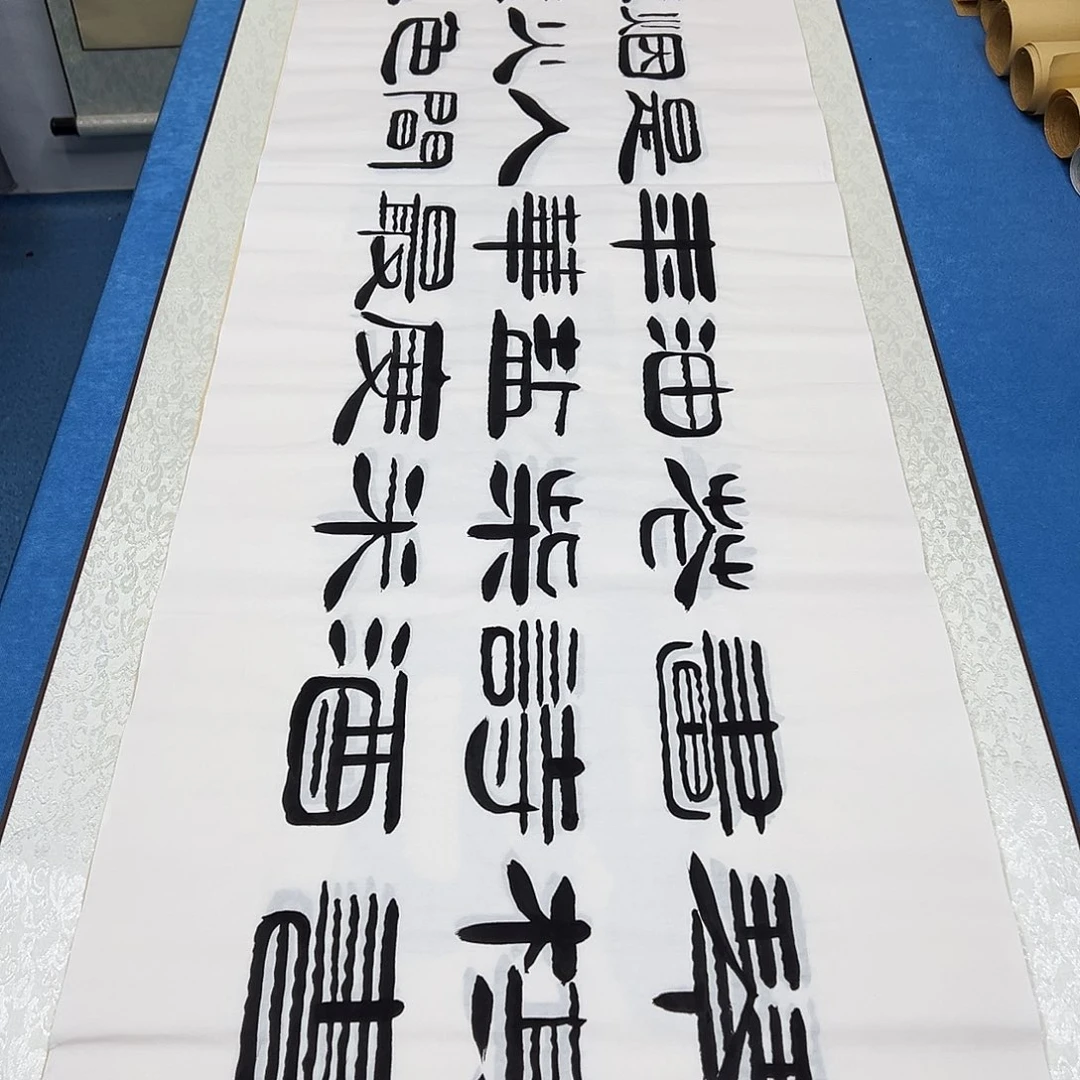 琴棋書
畫詩酒
花柴米
油盐度
年華最
是人間
烟火色